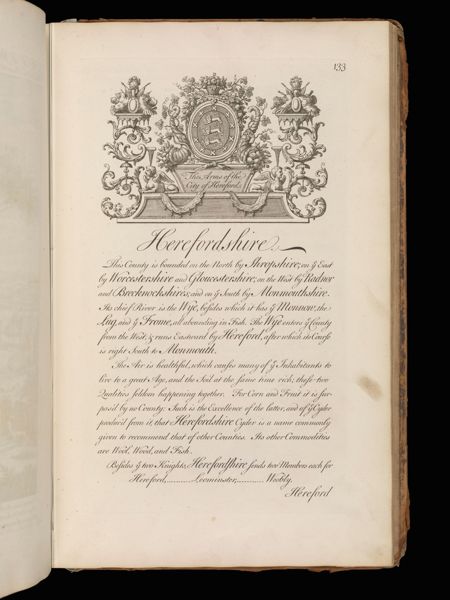 133
The Arms of the
City of Hereford.
Herefordshire
This County is bounded on the North by Shropshire, on ẙ East
by Worcestershire and Gloucestershire, on the West by Radnor
and Brecknockshires, and on ẙ South by Monmouthshire.
Its chief River is the Wye, besides which it has ẙ Monnow, the
Lug, and ẙ Frome, all abounding in Fish. The Wye enters ẙ County
from the West, & runs Eastward by Hereford, after which its Course
is right South to Monmouth.
The Air is healthful, which causes many of ẙ Inhabitants to
live to a great Age, and the Soil at the same time rich; these two
Qualities seldom happening together. For Corn and Fruit it is sur-
pass'd by no County. Such is the Excellence of the latter, and of ẙ Cyder
produc'd from it, that Herefordshire Cyder is a name commonly
given to recommend that of other Counties. Its other Commodities
are Wool, Wood, and Fish.
Besides ẙ two Knights, Herefordshire sends two Members each for
Hereford,............Leominster,............Weobly.
Hereford